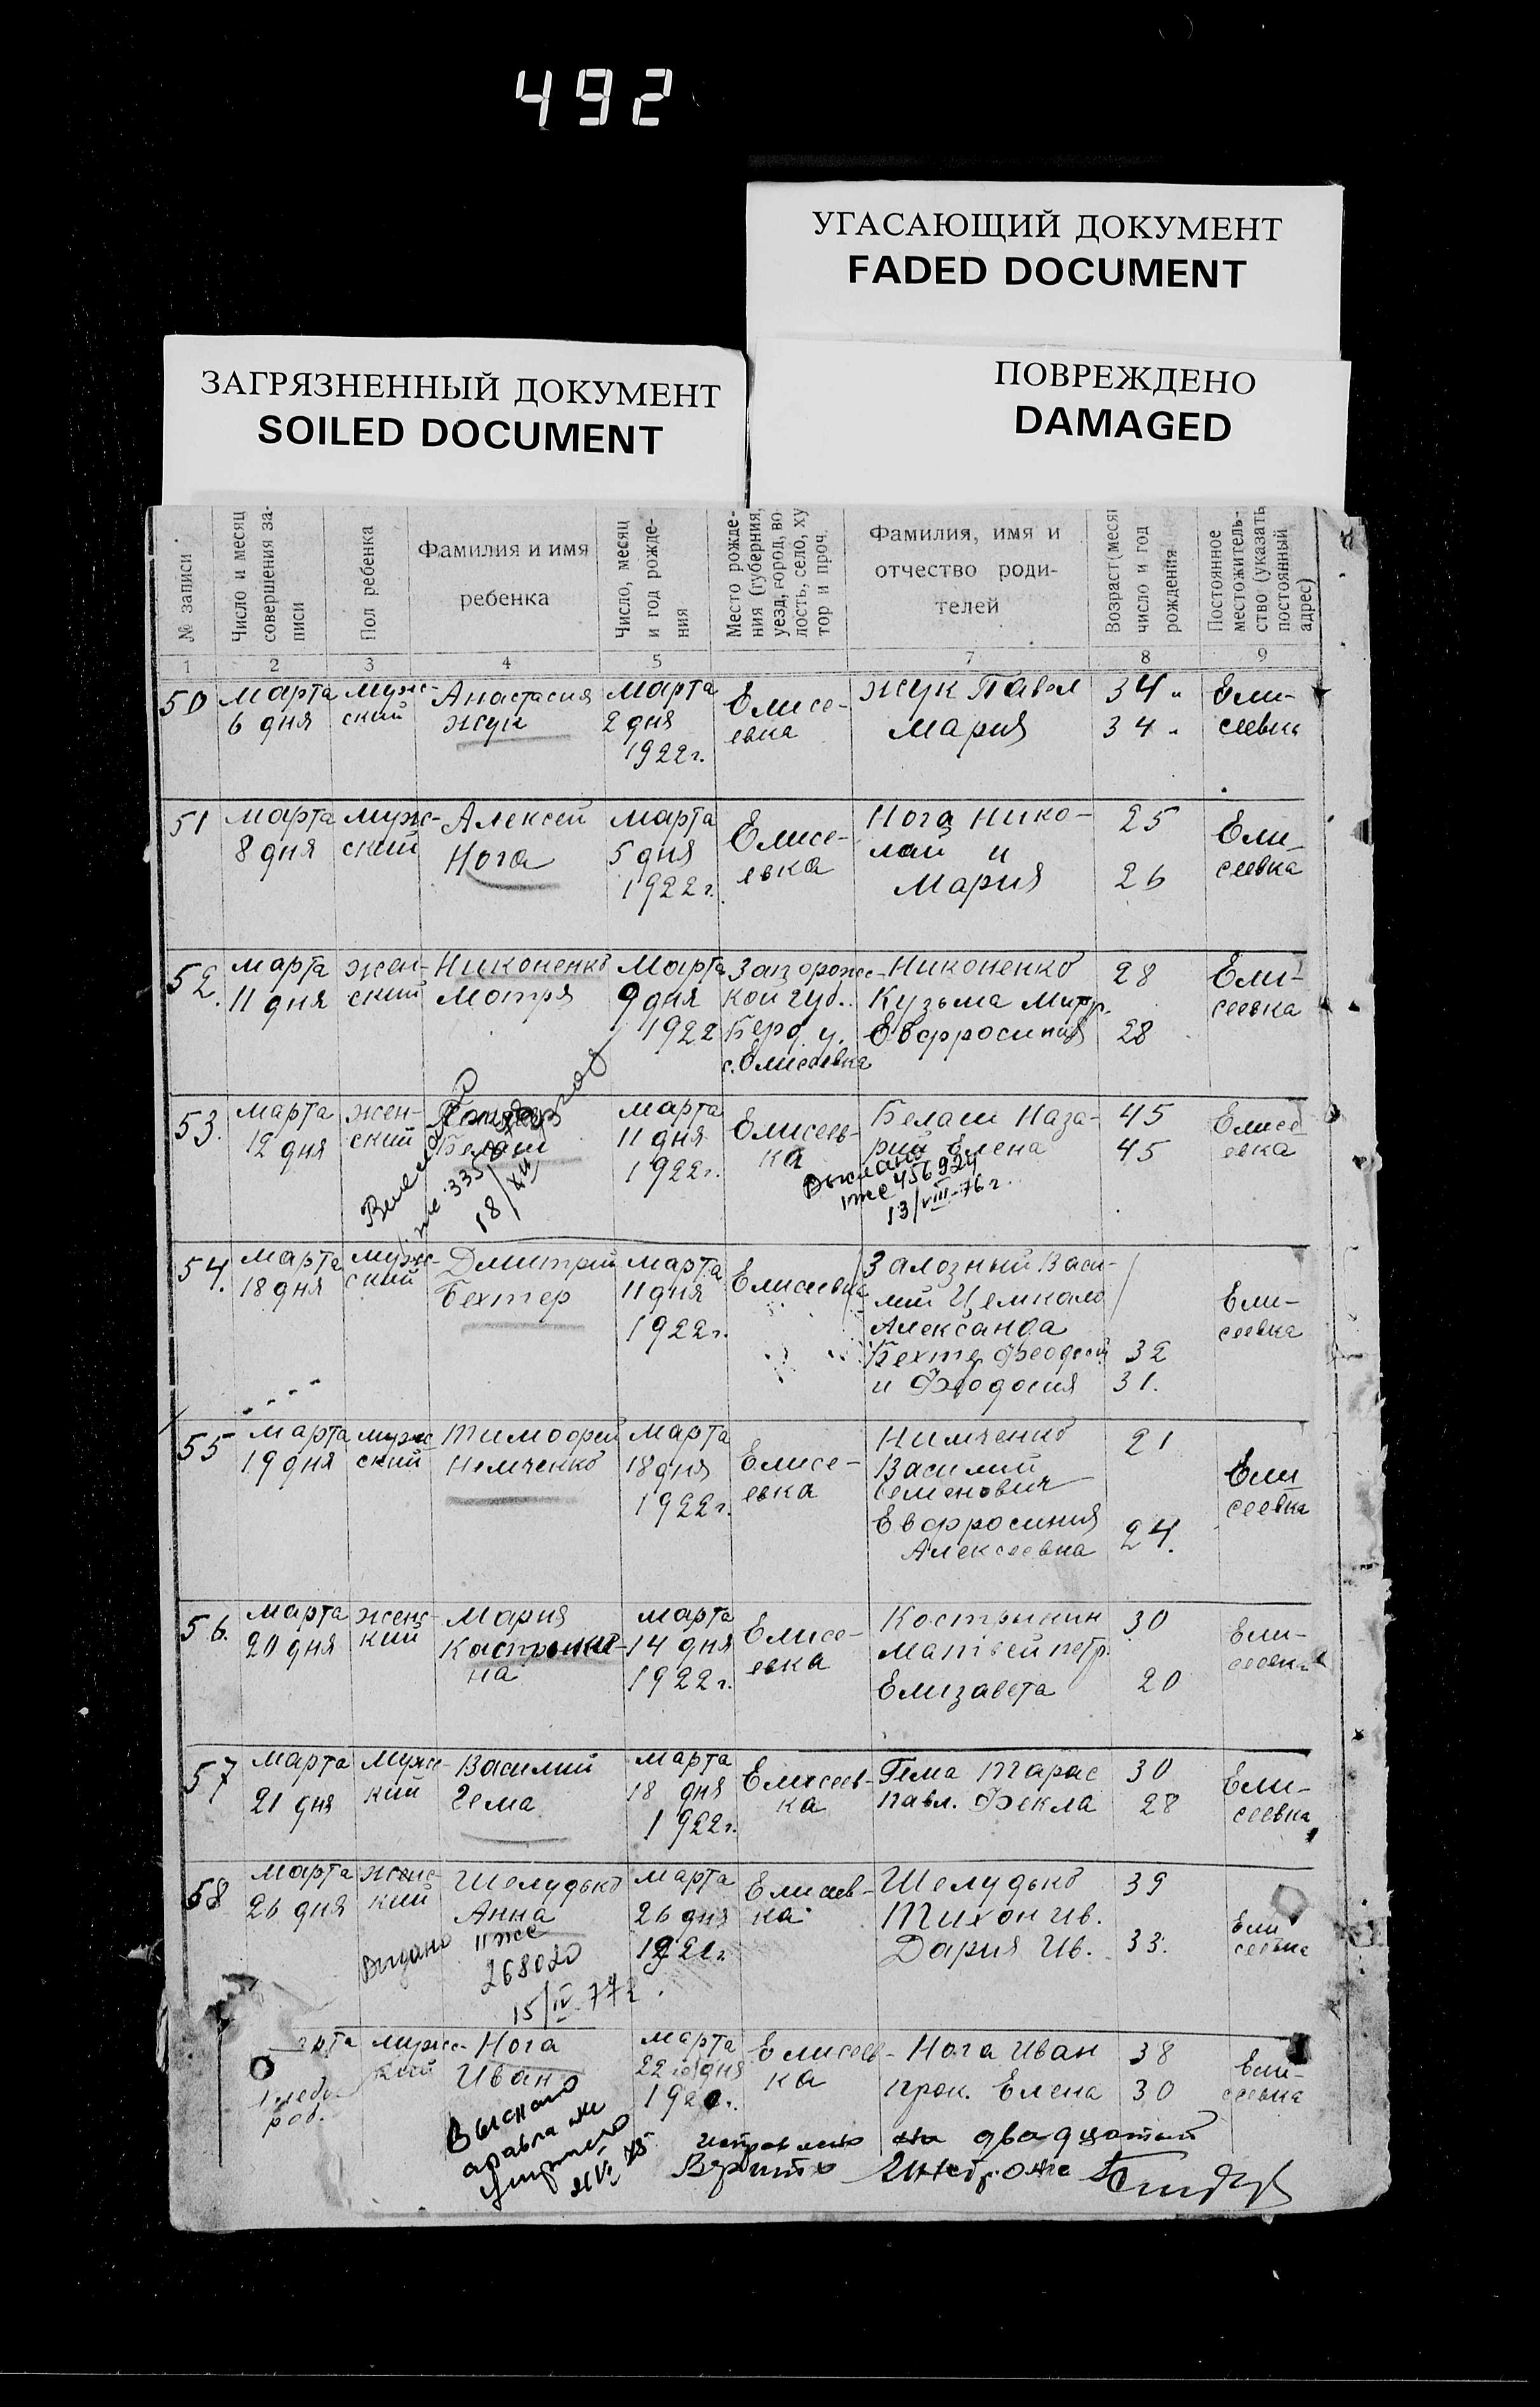 492
УГАСАЮЩИЙ ДОКУМЕНТ
FADED DOCUMENT
ЗАГРЯЗНЕННЫЙ ДОКУМЕНТ
SOILED DOCUMENT
ПОВРЕЖДЕНО
DAMAGED
№ записи
Число и месяц
совершения за-
писи
Пол ребенка
Фамилия и имя
ребенка
Число, месяц
и год рожде-
ния
Место рожде-
ния (губерния,
уезд, город, во
лость, село, ху
тор и проч.
Фамилия, имя и
отчество роди-
телей
Возраст (меся
число и год
рождения
Постоянное
местожитель-
ство (указать
постоянный
адрес)
1 2 3 4 5 7 8 9
50
Марта
6 дня
муж-
ский
Анастасия
Жук
Марта
2 дня
1922 г.
Елисе-
евка
Жук Павел
Мария
34 "
34 "
Ели-
сеевка
51
Марта
8 дня
муж-
ский
Алексей
Нога
Марта
5 дня
1922 г.
Елисе-
евка
Нога Нико-
лай и
Мария
25
26
Ели-
сеевка
52.
марта
11 дня
жен-
ский
Никоненко
Мотря
Марта
9 дня
1922
Запорож-
кой губ.
Берд. у.
с. Елисеевка
Никоненко
Кузьма Митр.
Евфросиния
28
28
Ели-
сеевка
53.
марта
12 дня
жен-
ский
Белаш
марта
11 дня
1922 г.
Елисеев-
ка
Белаш Наза-
рий Елена
45
45
Елисе
евка
335
18/XII
456924
13/VIII-76 г.
54.
марта
18 дня
муж-
ский
Дмитрий
Бехтер
марта
11 дня
1922 г.
Елисеевка
Залозный Васи-
лий
Александа
Бехтер Феодосий
и Феодосия
32
31.
Ели-
сеевка
55
марта
19 дня
муж
ский
Тимофей
Немченко
марта
18 дня
1922 г.
Елисе-
евка
Нимченко
Василий
Семенович
Евфросиния
Алексеевна
21
24.
Ели
сеевка
56.
марта
20 дня
женс-
кий
Мария
Кастрыки-
на
марта
14 дня
1922 г.
Елисе-
евка
Кострыкин
Матвей петр.
Елизавета
30
20
Ели-
сеевка
57
марта
21 дня
Муж-
кий
Василий
Гема
марта
18 дня
1922 г.
Елисеев-
ка
Гема Тарас
павл. Фекла
30
28
Ели-
сеевка
58
марта
26 дня
женс-
кий
Шелудько
Анна
марта
26 дня
1922 г.
Елисеев-
ка
Шелудько
Тихон Ив.
Дария Ив.
39
33.
Ели
сеевка
Выдано
II же
268020
15/IV-77 г.
рта
мужс-
кий
Нога
Иван
марта
22 дня
192 г.
Елисеев-
ка
Нога Иван
прок. Елена
38
30
Ели-
сеевка
Исправлено на двадцатый
Верить